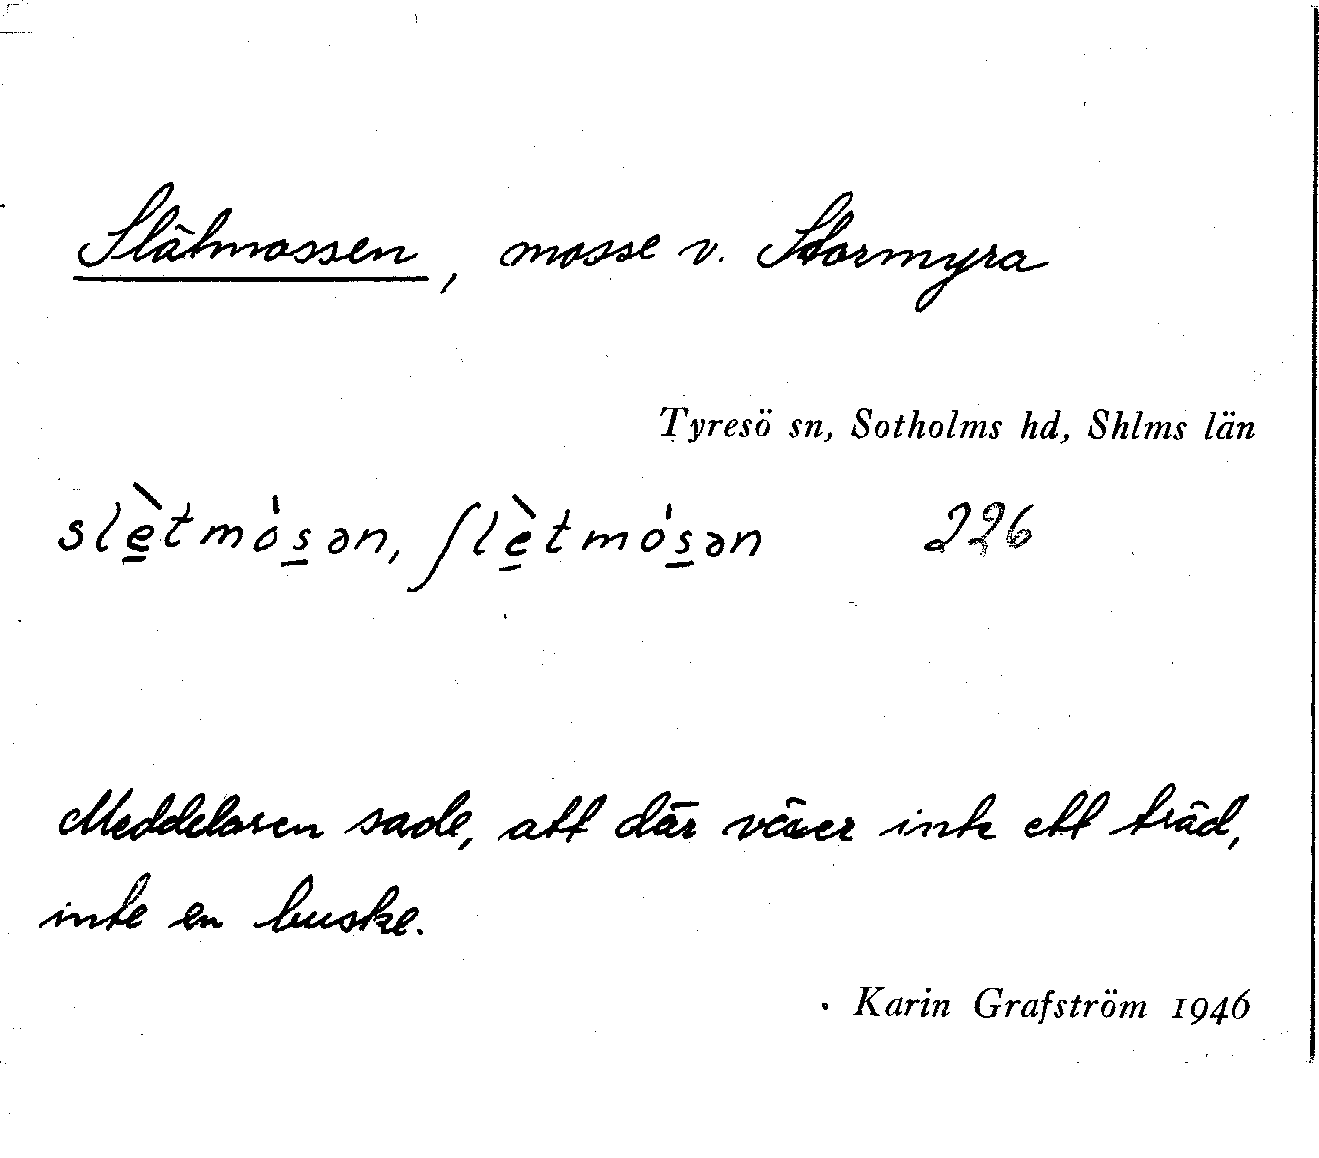 Slätmossen, mosse v. Stormyra
Tyresö sn, Sotholms hd, Shlms län
slè̱tmo̍s̱ən, ʃlè̱tmo̍s̱ən 226
Meddelaren sade, att där växer inte ett träd,
inte en buske.
Karin Grafström 1946